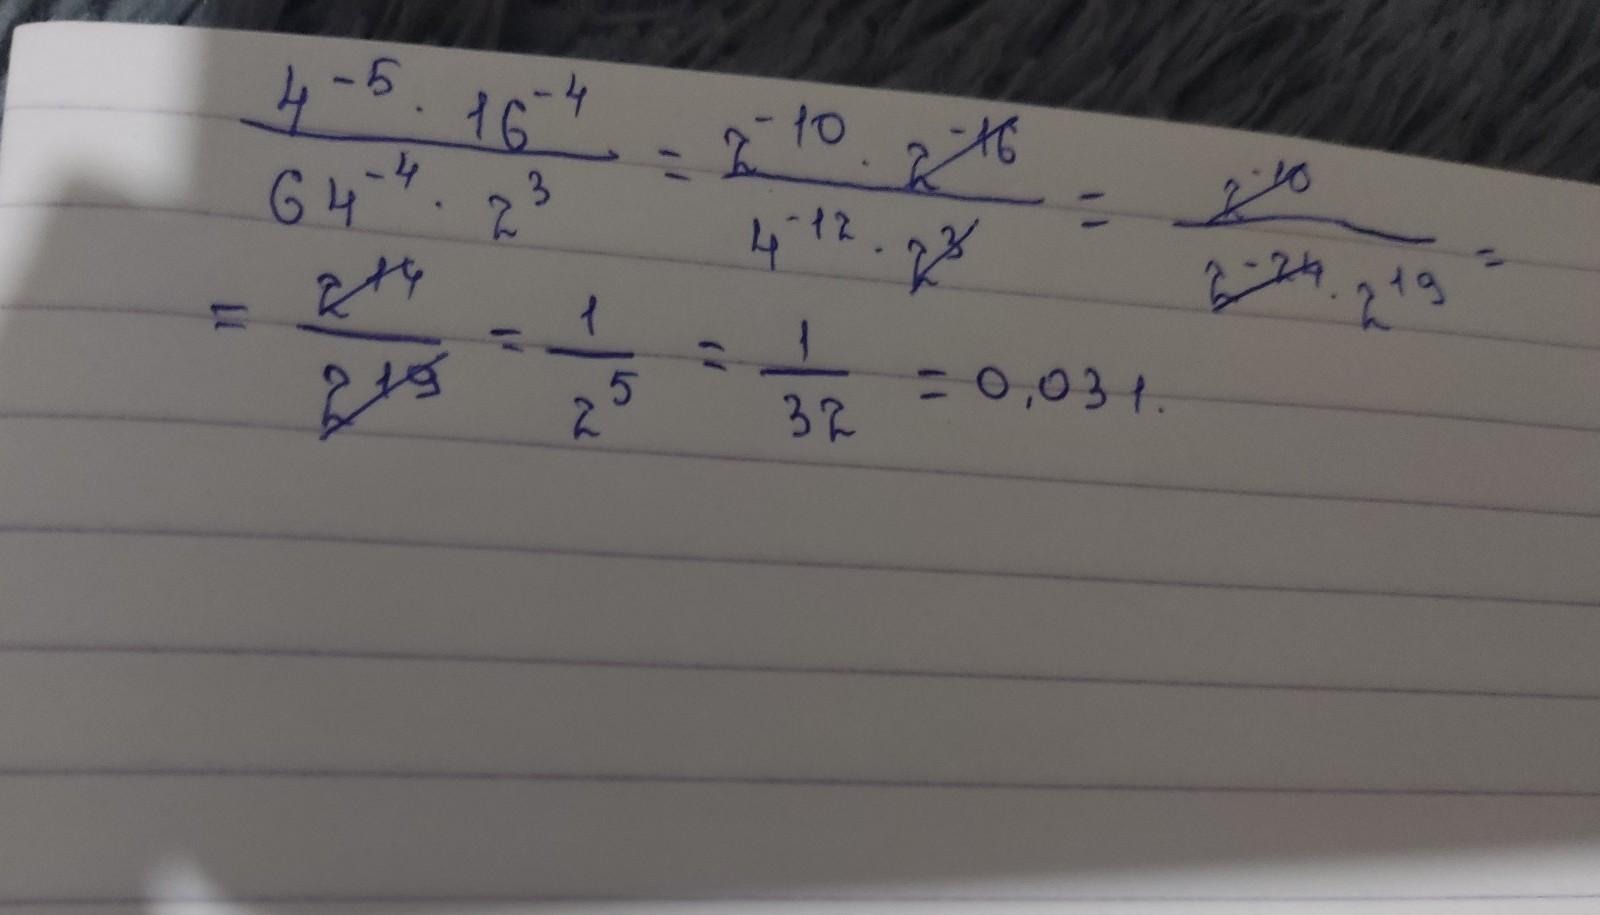 4^-5 · 16^-4 / 64^-4 · 2^3 = 2^-10 · 2^-16 / 4^-12 · 2^3 = 2^-10 / 2^-24 · 2^19 =
= 2^14 / 2^19 = 1 / 2^5 = 1 / 32 = 0,031.